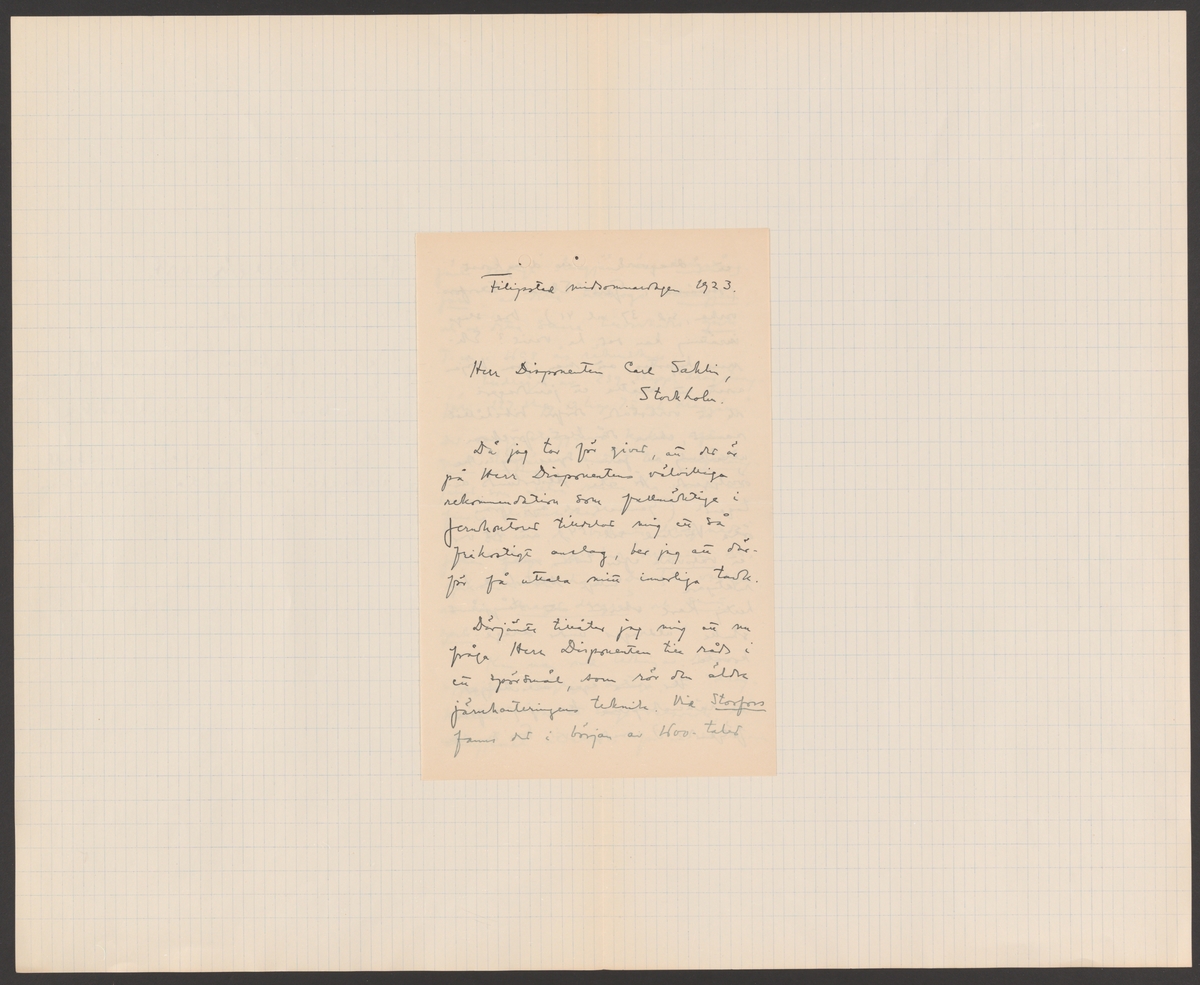 Filipstad midsommardagen 1923.
Herr Disponenten Carl Sahlin,
Stockholm.
Då jag tar för givet, att det är
på Herr Disponentens välvilliga
rekommendation som fullmäktige i
Jernkontoret tilldelat mig ett så
frikostigt anslag, ber jag att där-
för få uttala mitt innerliga tack.
Därjämte tillåter jag mig att nu
fråga Herr Disponenten till råds i
ett spörsmål, som rör den äldre
järnhanteringens teknik. Vid Storfors
fanns det i början av 1600-talet